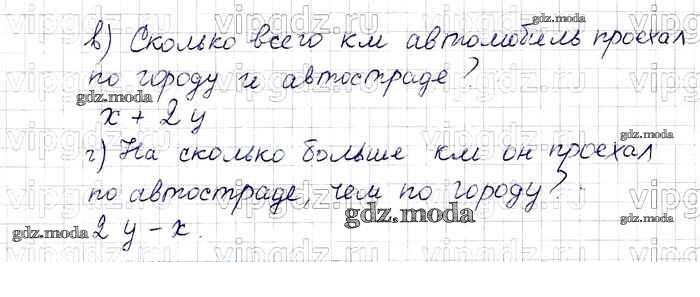 в) Сколько всего км автомобиль проехал
по городу и автостраде?
x + 2y
г) На сколько больше км он проехал
по автостраде, чем по городу?
2y - x.
gdz.moda
gdz.moda
gdz.moda
gdz.moda
gdz.moda
gdz.moda
vipgdz.ru